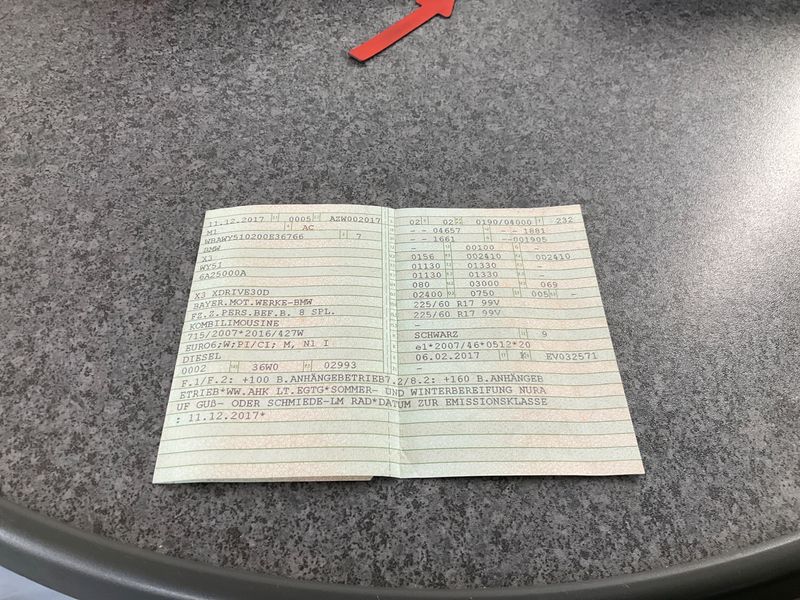 11.12.2017 0005 AZW002017
M1 AC
WBAWY510200E36766 7
BMW
X3
WY51
6A25000A
X3 XDRIVE30D
BAYER.MOT.WERKE-BMW
FZ.Z.PERS.BEF.B. 8 SPL.
KOMBILIMOUSINE
715/2007*2016/427W
EURO6;W;PI/CI; M, N1 I
DIESEL
0002 36W0 02993
02 02 0190/04000 232
- - 04657 - - 1881
- - 1661 --001905
- 00100 -
0156 002410 002410
01130 01330 -
01130 01330 -
080 03000 069
02400 0750 005 -
225/60 R17 99V
225/60 R17 99V
-
SCHWARZ 9
e1*2007/46*0512*20
06.02.2017 K EV032571
-
F.1/F.2: +100 B.ANHÄNGEBETRIEB7.2/8.2: +160 B.ANHÄNGEB
ETRIEB*WW.AHK LT.EGTG*SOMMER- UND WINTERBEREIFUNG NURA
UF GUß- ODER SCHMIEDE-LM RAD*DATUM ZUR EMISSIONSKLASSE
: 11.12.2017*